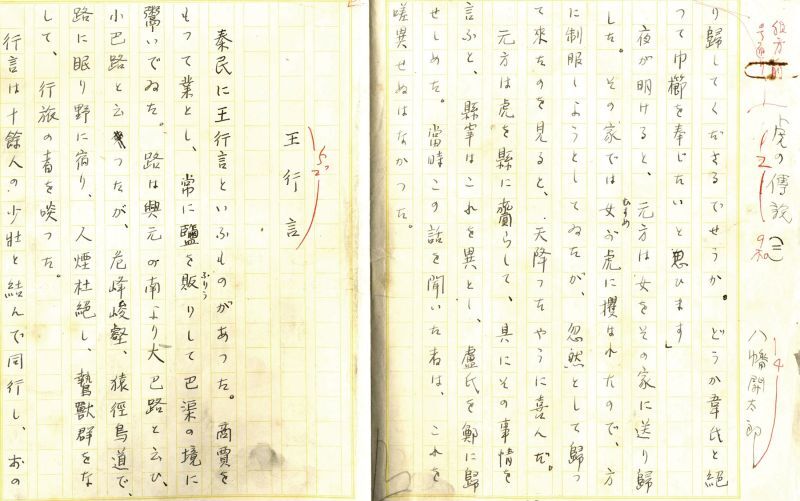 虎の傳説(二)
八幡關太郎
り歸してくださるでせうか。どうか韋氏と絕
つて巾櫛を奉じたいと思ひます」
夜が明けると、元方は女をその家に送り歸
した。その家では女が虎に攫はれたので、方
に制服しようとしてゐたが、忽然として歸つ
て來たのを見ると、天降つたやうに喜んだ。
元方は虎を縣に齎らして、具にその事情を
言ふと、縣宰はこれを異とし、盧氏を鄭に歸
せしめた。當時この話を聞いた者は、これを
嗟異せぬはなかつた。
王行言
秦民に王行言といふものがあつた。商賈を
もつて業とし、常に鹽を販りして巴渠の境に
鬻いでゐた。路は興元の南より大巴路と云ひ、
小巴路と云つたが、危峰峻壑、猿徑鳥道で、
路に眠り野に宿り、人煙杜絕し、鷙獸群をな
して、行旅の者を啖つた。
行言は十餘人の少壯と結んで同行し、おの